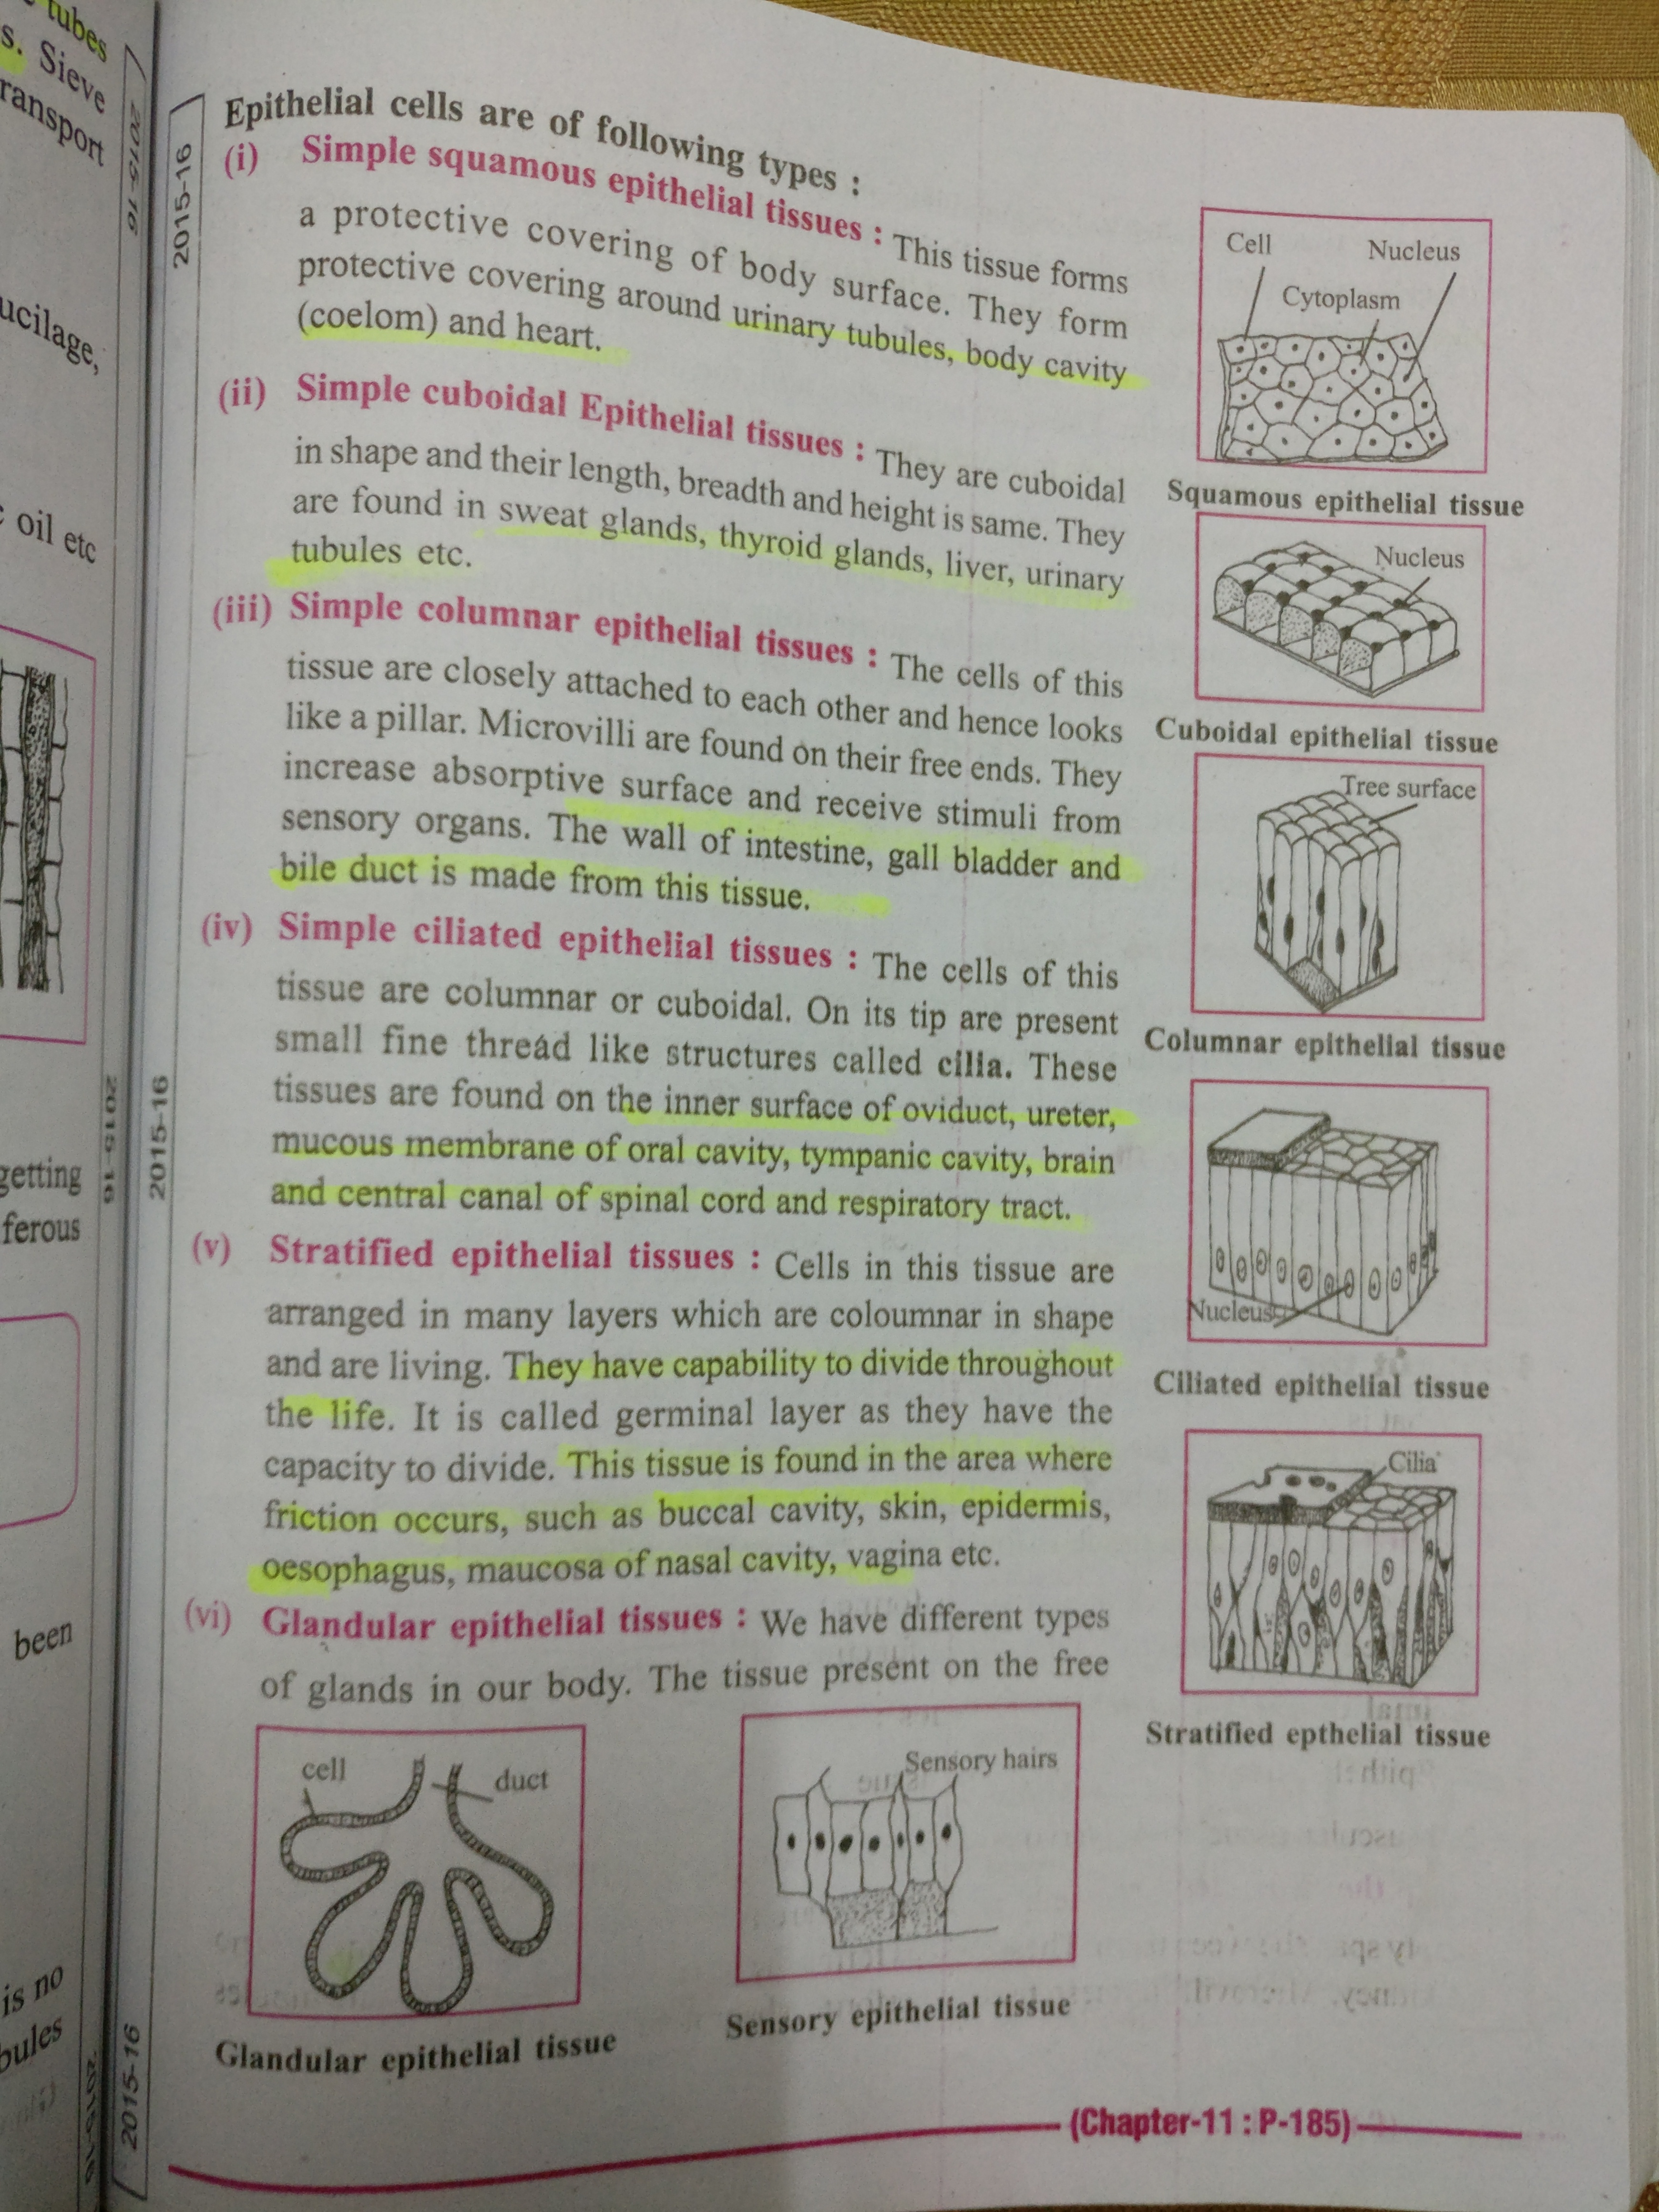 tubes
s. Sieve
ransport
ucilage,
oil etc
getting
ferous
been
is no
bules
2015-16
2015-16
2015-16
2015-16
2015-16
Epithelial cells are of following types :
(i) Simple squamous epithelial tissues : This tissue forms
a protective covering of body surface. They form
protective covering around urinary tubules, body cavity
(coelom) and heart.
(ii) Simple cuboidal Epithelial tissues : They are cuboidal
in shape and their length, breadth and height is same. They
are found in sweat glands, thyroid glands, liver, urinary
tubules etc.
(iii) Simple columnar epithelial tissues : The cells of this
tissue are closely attached to each other and hence looks
like a pillar. Microvilli are found on their free ends. They
increase absorptive surface and receive stimuli from
sensory organs. The wall of intestine, gall bladder and
bile duct is made from this tissue.
(iv) Simple ciliated epithelial tissues : The cells of this
tissue are columnar or cuboidal. On its tip are present
small fine thread like structures called cilia. These
tissues are found on the inner surface of oviduct, ureter,
mucous membrane of oral cavity, tympanic cavity, brain
and central canal of spinal cord and respiratory tract.
(v) Stratified epithelial tissues : Cells in this tissue are
arranged in many layers which are coloumnar in shape
and are living. They have capability to divide throughout
the life. It is called germinal layer as they have the
capacity to divide. This tissue is found in the area where
friction occurs, such as buccal cavity, skin, epidermis,
oesophagus, maucosa of nasal cavity, vagina etc.
(vi) Glandular epithelial tissues : We have different types
of glands in our body. The tissue present on the free
Cell Nucleus
Cytoplasm
Squamous epithelial tissue
Nucleus
Cuboidal epithelial tissue
Tree surface
Columnar epithelial tissue
Nucleus
Ciliated epithelial tissue
Cilia
Stratified epthelial tissue
cell duct
Glandular epithelial tissue
Sensory hairs
Sensory epithelial tissue
(Chapter-11 : P-185)